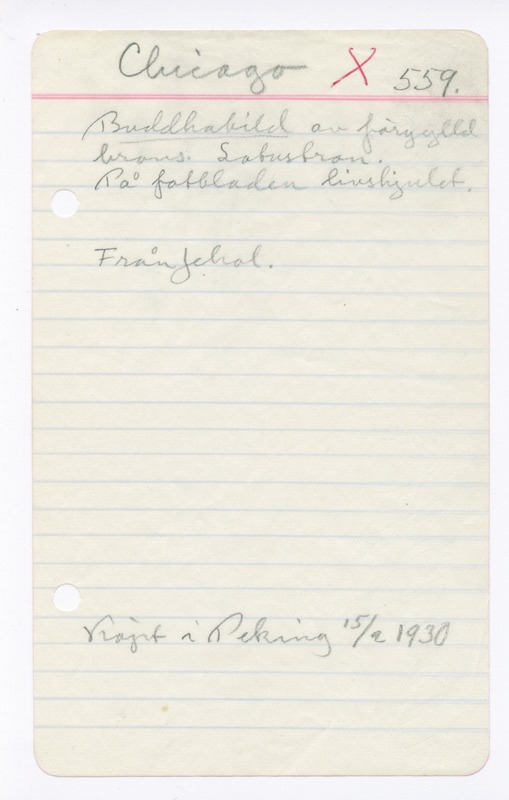 Chicago X 559.
Buddhabild av förgylld
brons. Lotustron.
På fotbladen livshjulet.
Från Jehol.
Köpt i Peking 15/2 1930